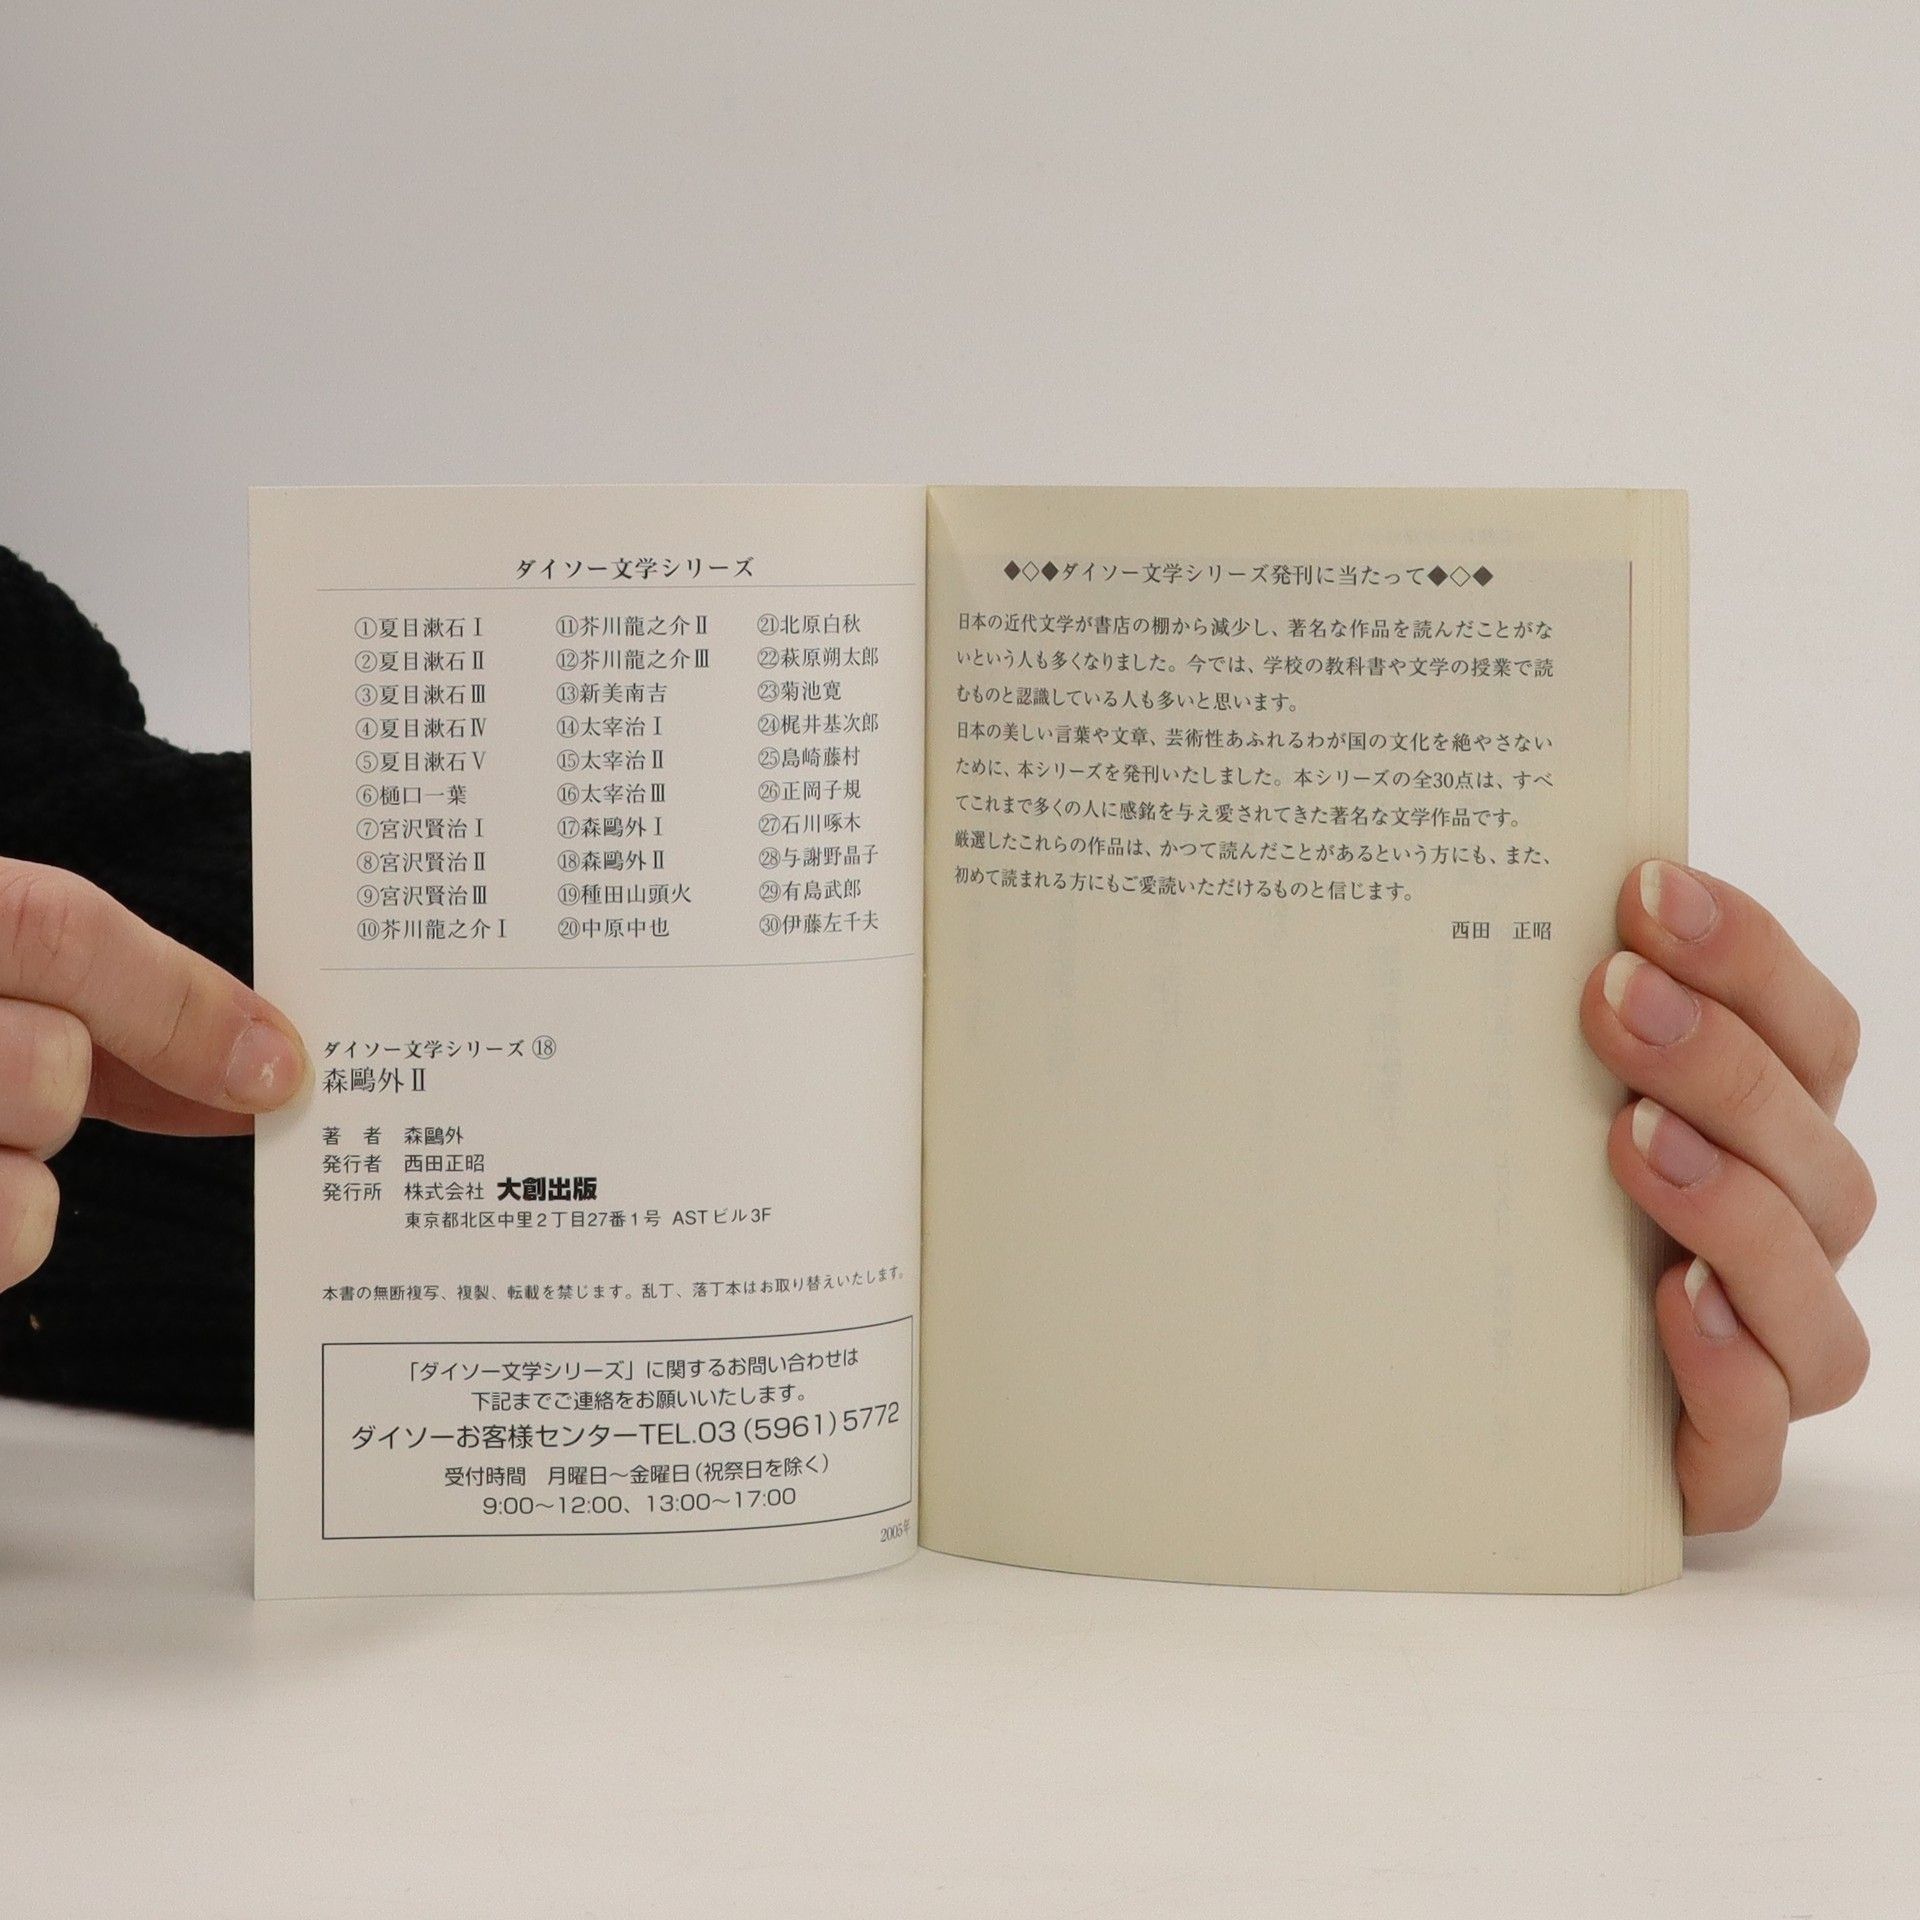 ダイソー文学シリーズ
①夏目漱石Ⅰ
②夏目漱石Ⅱ
③夏目漱石Ⅲ
④夏目漱石Ⅳ
⑤夏目漱石Ⅴ
⑥樋口一葉
⑦宮沢賢治Ⅰ
⑧宮沢賢治Ⅱ
⑨宮沢賢治Ⅲ
⑩芥川龍之介Ⅰ
⑪芥川龍之介Ⅱ
⑫芥川龍之介Ⅲ
⑬新美南吉
⑭太宰治Ⅰ
⑮太宰治Ⅱ
⑯太宰治Ⅲ
⑰森鷗外Ⅰ
⑱森鷗外Ⅱ
⑲種田山頭火
⑳中原中也
㉑北原白秋
㉒萩原朔太郎
㉓菊池寛
㉔梶井基次郎
㉕島崎藤村
㉖正岡子規
㉗石川啄木
㉘与謝野晶子
㉙有島武郎
㉚伊藤左千夫
ダイソー文学シリーズ⑱
森鷗外Ⅱ
著　者　森鷗外
発行者　西田正昭
発行所　株式会社 大創出版
東京都北区中里2丁目27番1号 ASTビル3F
本書の無断複写、複製、転載を禁じます。乱丁、落丁本はお取り替えいたします。
「ダイソー文学シリーズ」に関するお問い合わせは
下記までご連絡をお願いいたします。
ダイソーお客様センターTEL.03(5961)5772
受付時間　月曜日～金曜日(祝祭日を除く)
9:00～12:00、13:00～17:00
2005年
◆◇◆ダイソー文学シリーズ発刊に当たって◆◇◆
日本の近代文学が書店の棚から減少し、著名な作品を読んだことがな
いという人も多くなりました。今では、学校の教科書や文学の授業で読
むものと認識している人も多いと思います。
日本の美しい言葉や文章、芸術性あふれるわが国の文化を絶やさない
ために、本シリーズを発刊いたしました。本シリーズの全30点は、すべ
てこれまで多くの人に感銘を与え愛されてきた著名な文学作品です。
厳選したこれらの作品は、かつて読んだことがあるという方にも、また、
初めて読まれる方にもご愛読いただけるものと信じます。
西田　正昭